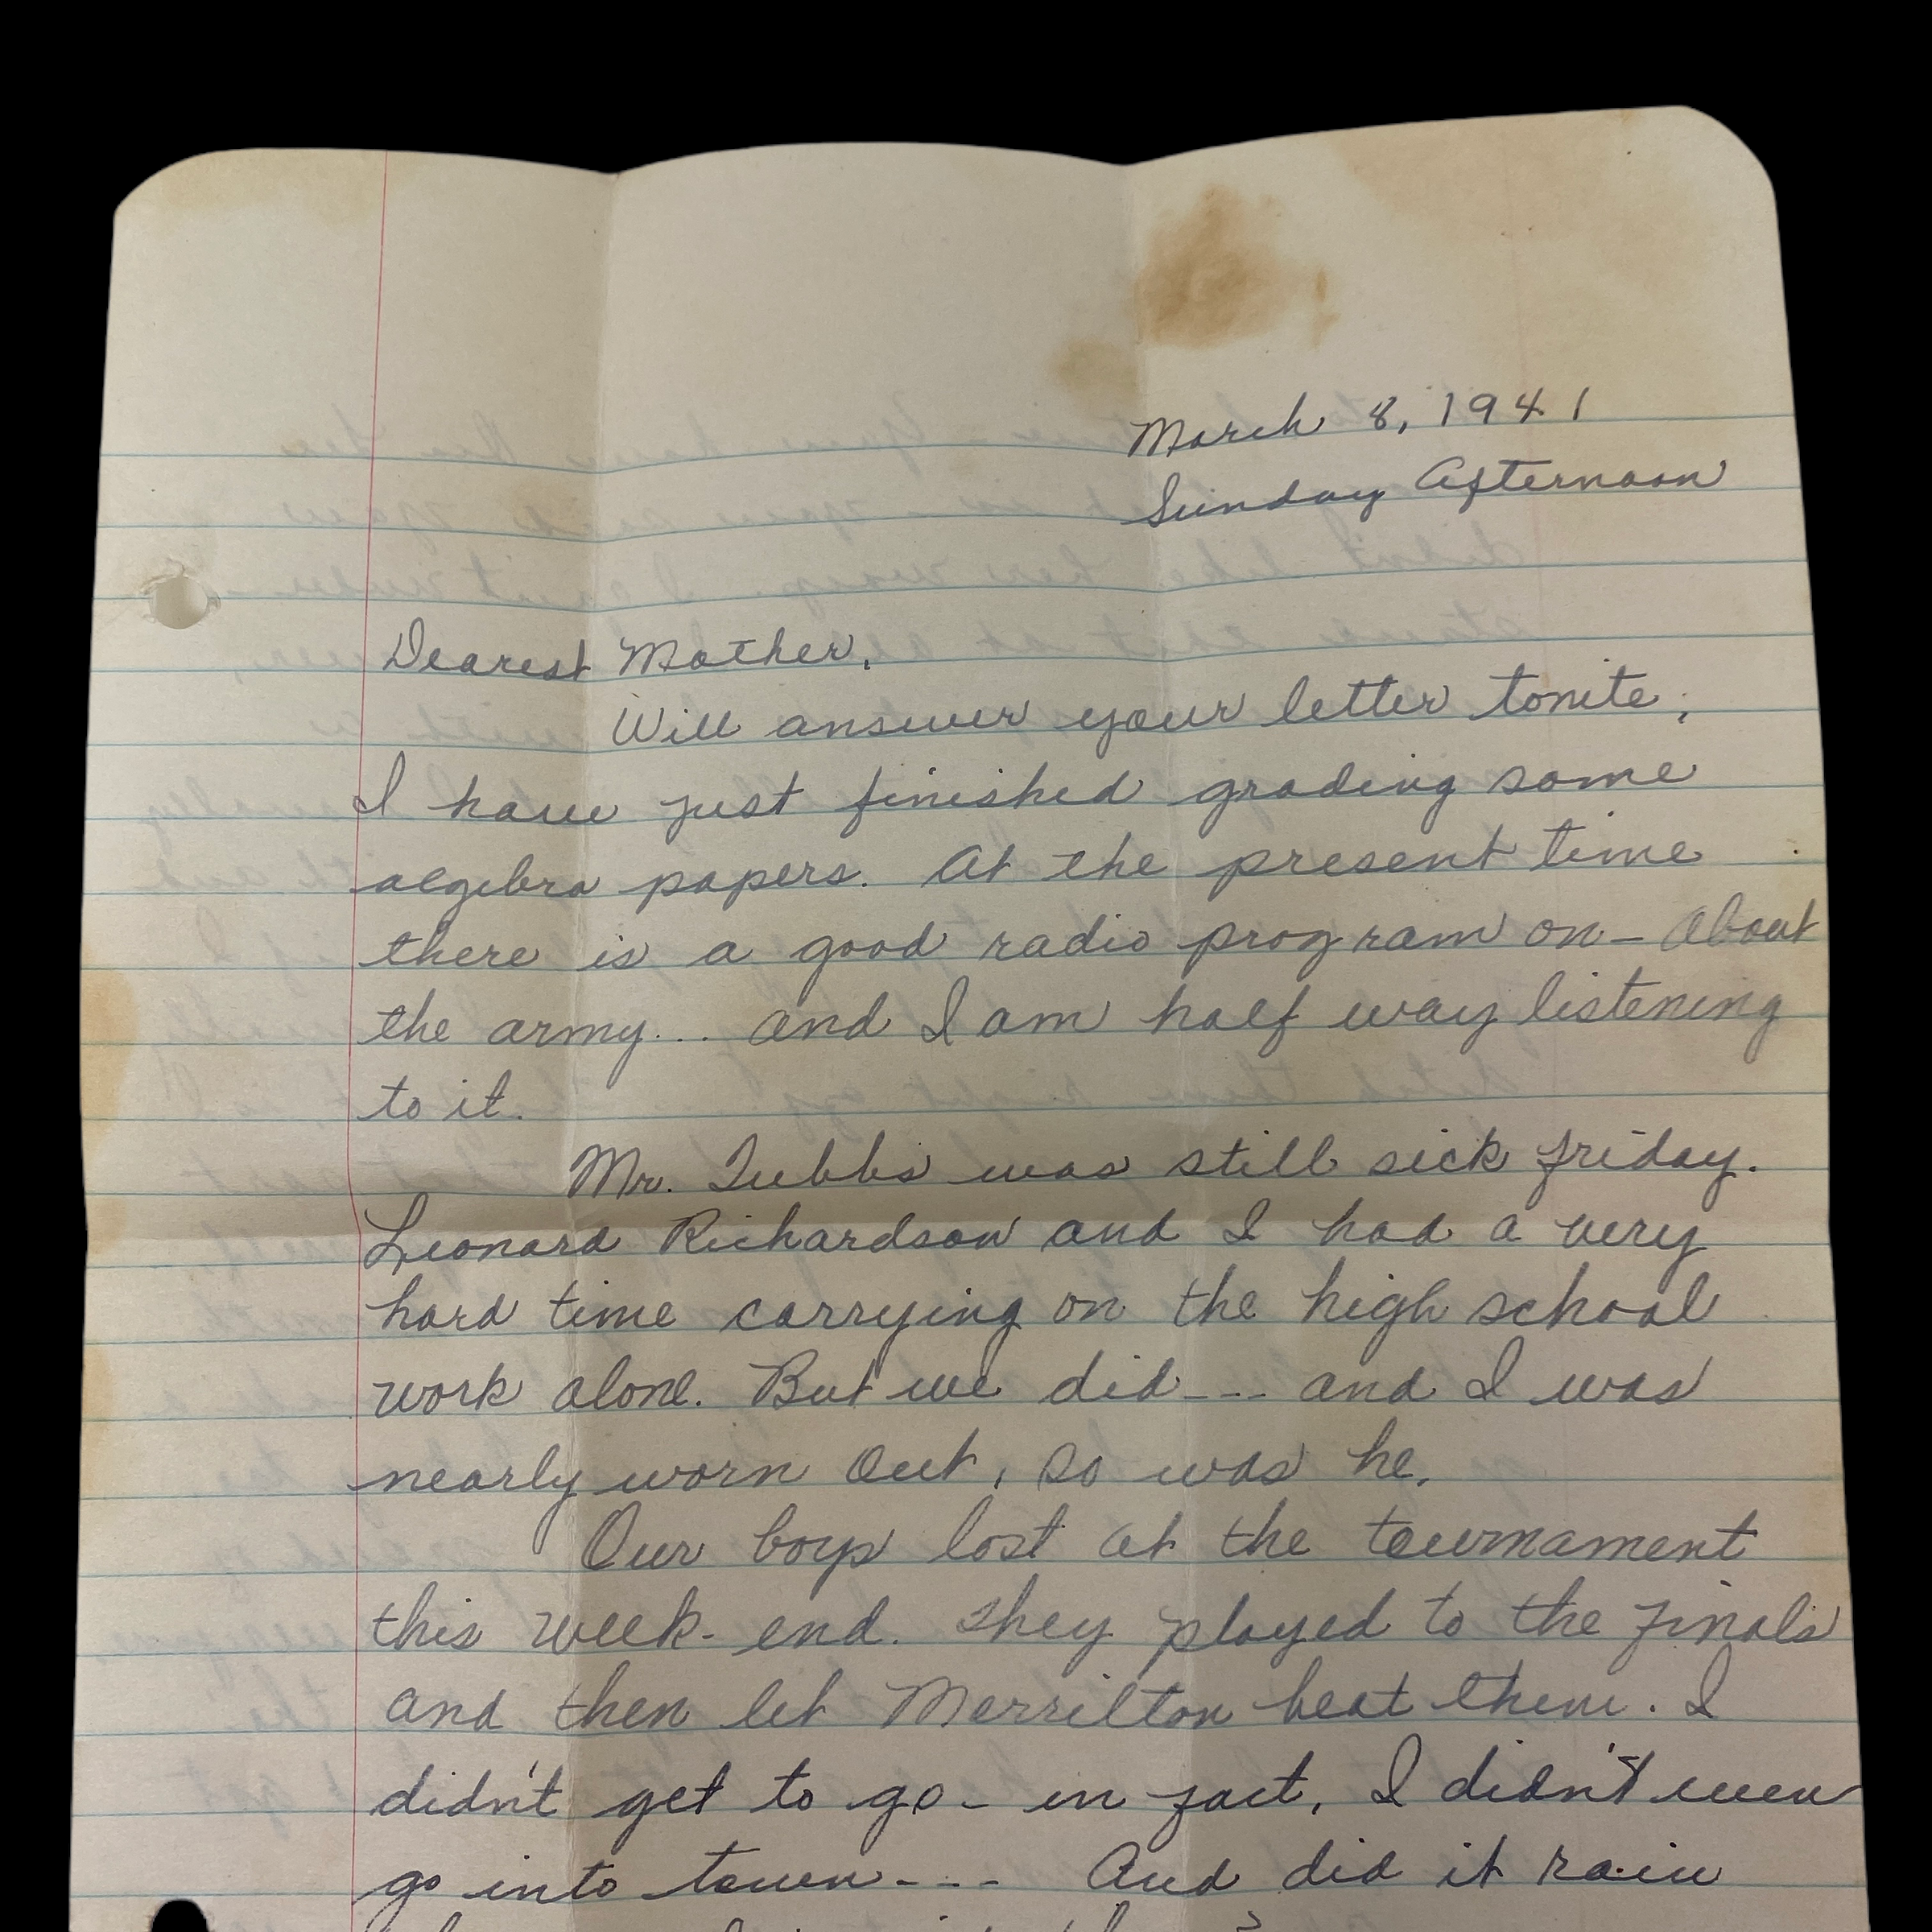 March 8, 1941
Sunday Afternoon
Dearest Mother,
Will answer your letter tonite;
I have just finished grading some
algebra papers. At the present time
there is a good radio program on — About
the army... and I am half way listening
to it.
Mr. Tubbs was still sick friday.
Leonard Richardson and I had a very
hard time carrying on the high school
work alone. But we did --- and I was
nearly worn out, so was he.
Our boys lost at the tournament
this week-end. They played to the finals
and then let Merrilton beat them. I
didn't get to go - in fact, I didn't even
go into town --- And did it rain